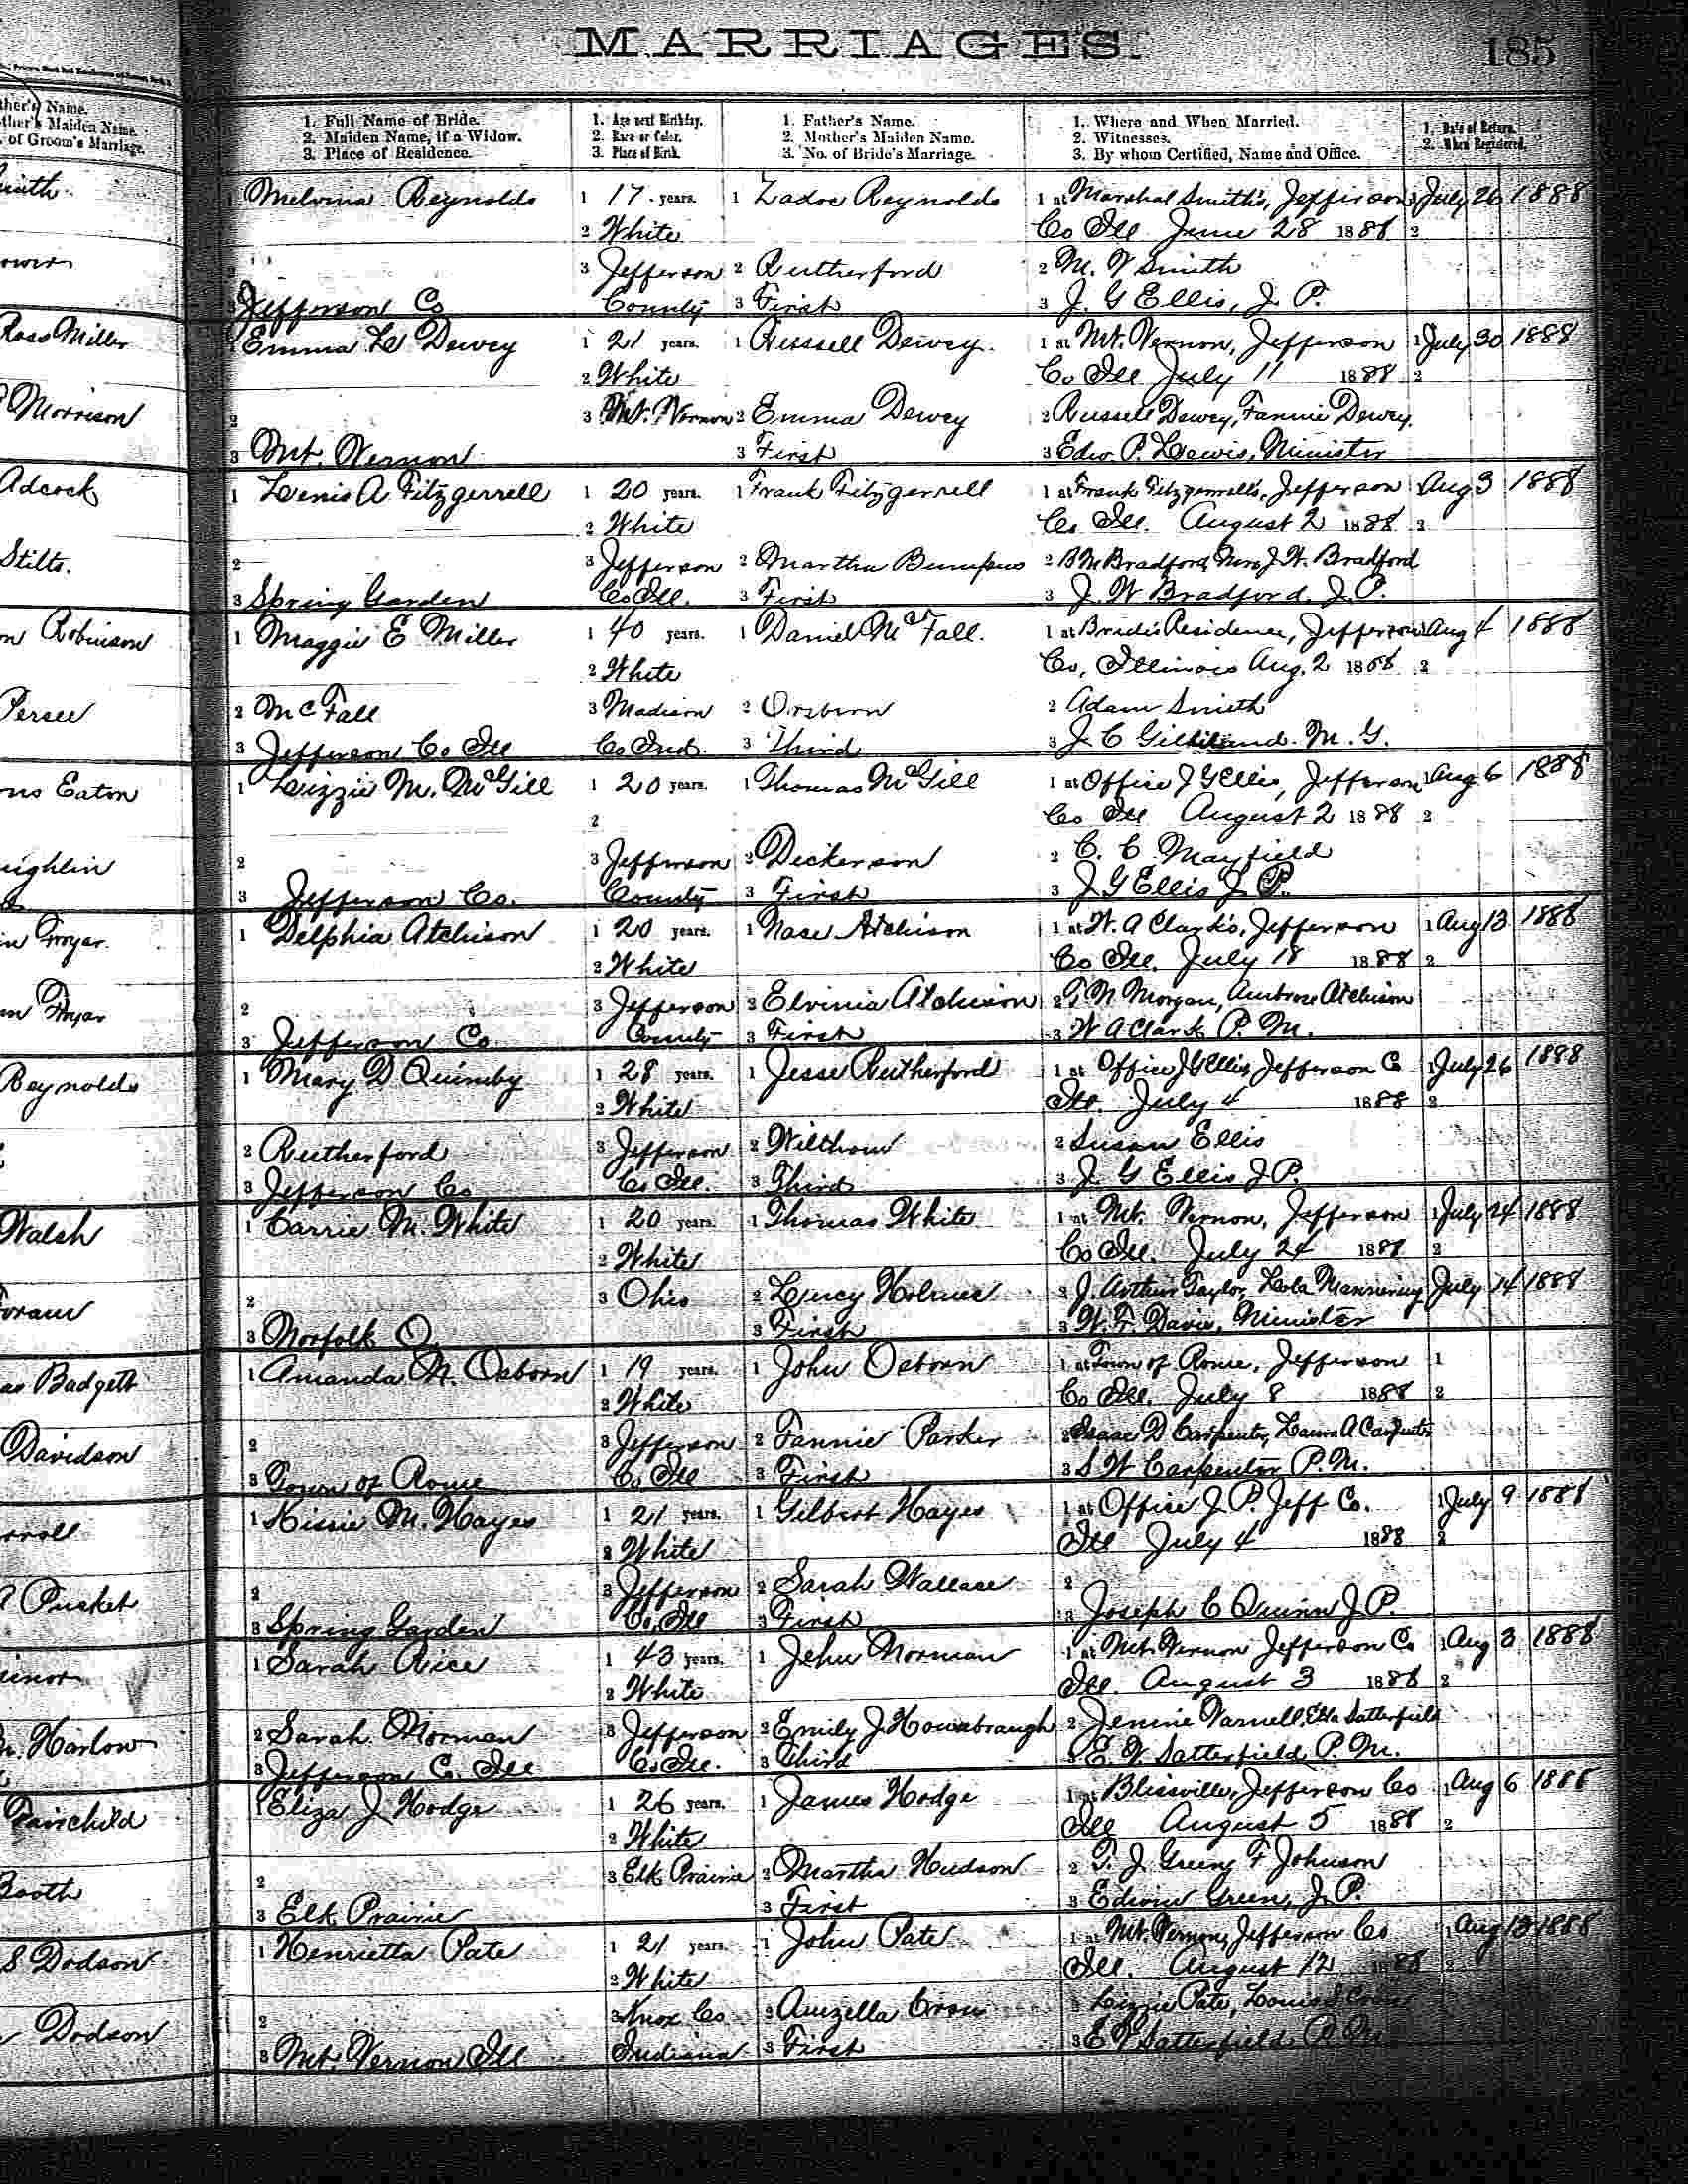 MARRIAGES.
185
ther's Name.
ther's Maiden Name.
of Groom's Marriage.
1. Full Name of Bride.
2. Maiden Name, if a Widow.
3. Place of Residence.
1. Age next Birthday.
2. Race or Color.
3. Place of Birth.
1. Father's Name.
2. Mother's Maiden Name.
3. No. of Bride's Marriage.
1. Where and When Married.
2. Witnesses.
3. By whom Certified, Name and Office.
1. Date of Return.
2. When Registered.
1 Melvina Reynolds 1 17 years. 1 Zadoc Reynolds 1 at Marshal Smith's, Jefferson 1 July 26 1888
2 White Co Ill June 28 1888 2
3 Jefferson 2 Rutherford 2 M. V Smith
3 Jefferson Co County 3 First 3 J. G Ellis, J. P.
Ross Miller 1 Emma Le Dewey 1 21 years. 1 Russell Dewey. 1 at Mt. Vernon, Jefferson 1 July 30 1888
2 White Co Ill July 11 1888 2
Morrison 2 3 Mt. Vernon 2 Emma Dewey 2 Russell Dewey, Fannie Dewey.
3 Mt. Vernon 3 First 3 Edw. P. Lewis, Minister
Adcock 1 Lenis A Fitzgerrell 1 20 years. 1 Frank Fitzgerrell 1 at Frank Fitzgerrell's, Jefferson Aug 3 1888
2 White Co Ill. August 2 1888 2
Stilts. 2 3 Jefferson 2 Martha Bumpus 2 B M Bradford, Mrs J. W. Bradford
3 Spring Garden Co Ill. 3 First 3 J. W Bradford. J. P.
Robinson 1 Maggie E Miller 1 40 years. 1 Daniel McFall. 1 at Bride's Residence, Jefferson Aug 4 1888
2 White Co, Illinois Aug. 2 1888 2
Persee 2 McFall 3 Madison 2 Orsburn 2 Adam Smith
3 Jefferson Co Ill Co Ind. 3 Third 3 J. C Gilliland. M. G.
Eaton 1 Lizzie M. McGill 1 20 years. 1 Thomas McGill 1 at Office J G Ellis, Jefferson 1 Aug 6 1888
2 Co Ill August 2 1888 2
2 3 Jefferson 2 Dickerson 2 C. C. Mayfield
3 Jefferson Co. County 3 First 3 J G Ellis J. P.
1 Delphia Atchison 1 20 years. 1 Nase Atchison 1 at W. A Clark's, Jefferson 1 Aug 13 1888
2 White Co Ill. July 18 1888 2
2 3 Jefferson 2 Elvinia Atchison 2 T. N Morgan, Ambrose Atchison
3 Jefferson Co County 3 First 3 W A Clark P. M.
Reynolds 1 Mary D Quimby 1 28 years. 1 Jesse Rutherford 1 at Office J G Ellis, Jefferson C 1 July 26 1888
2 White Ill. July 4 1888 2
2 Rutherford 3 Jefferson 2 Wilthrow 2 Susan Ellis
3 Jefferson Co Co Ill. 3 Third 3 J. G Ellis J P.
Walsh 1 Carrie M. White 1 20 years. 1 Thomas White 1 at Mt. Vernon, Jefferson 1 July 24 1888
2 White Co Ill. July 24 1888 2
2 3 Ohio 2 Lucy Holmes 2 J. Arthur Taylor, Lola Mannering July 14 1888
3 Norfolk O. 3 First 3 W. F. Davis, Minister
Badgett 1 Amanda N. Osborn 1 19 years. 1 John Osborn 1 at Town of Rome, Jefferson 1
2 White Co Ill. July 8 1888 2
Davidson 2 3 Jefferson 2 Fannie Parker 2 Isaac D Carpenter, Laura A Carpenter
3 Town of Rome Co Ill 3 First 3 S W Carpenter P. M.
1 Kissie M. Hayes 1 21 years. 1 Gilbert Hayes 1 at Office J. P. Jeff Co. 1 July 9 1888
2 White Ill July 4 1888 2
Pucket 2 3 Jefferson 2 Sarah Wallace 2
3 Spring Garden Co, Ill 3 First 3 Joseph C Quinn J. P.
1 Sarah Rice 1 43 years. 1 Jehu Norman 1 at Mt. Vernon Jefferson Co 1 Aug 3 1888
2 White Ill. August 3 1888 2
Harlow 2 Sarah Norman 3 Jefferson 2 Emily J. 2 Jennie Varnell, Etta Satterfield
3 Jefferson C. Ill Co Ill. 3 Third 3 E. V Satterfield P. M.
Fairchild 1 Eliza J Hodge 1 26 years. 1 James Hodge 1 at Blissville, Jefferson Co 1 Aug 6 1888
2 White Ill August 5 1888 2
Booth 2 3 Elk Prairie 2 Martha Hudson 2 T. J. Green, F Johnson
3 Elk Prairie 3 First 3 Edwin Green, J. P.
S Dodson 1 Henrietta Pate 1 21 years. 1 John Pate 1 at Mt. Vernon, Jefferson Co 1 Aug 13 1888
2 White Ill. August 12 1888 2
Dodson 2 3 Knox Co 2 Auzella Crow 2 Lizzie Pate,
3 Mt. Vernon Ill Indiana 3 First 3 E V Satterfield, P. M.